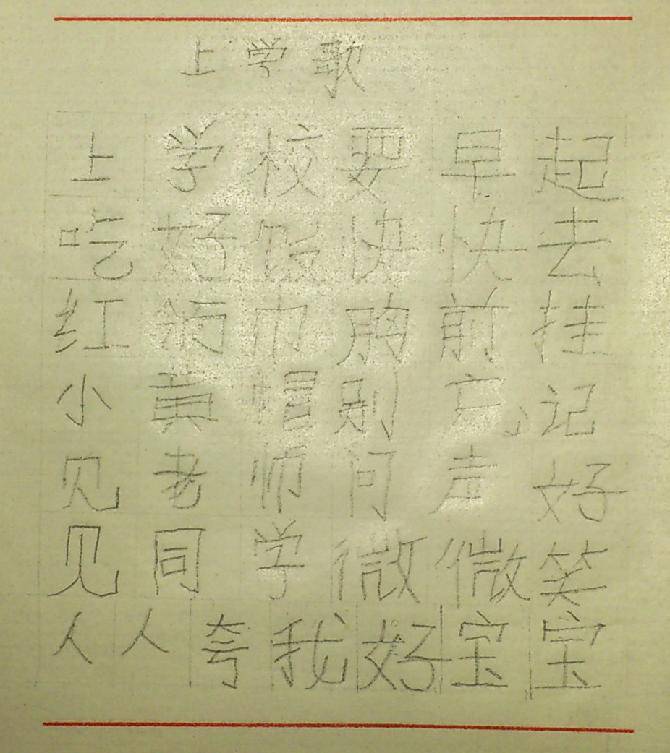 上学歌
上学校要早起
吃好饭快快去
红领巾胸前挂
小黄帽别忘记
见老师问声好
见同学微微笑
人人夸我好宝宝